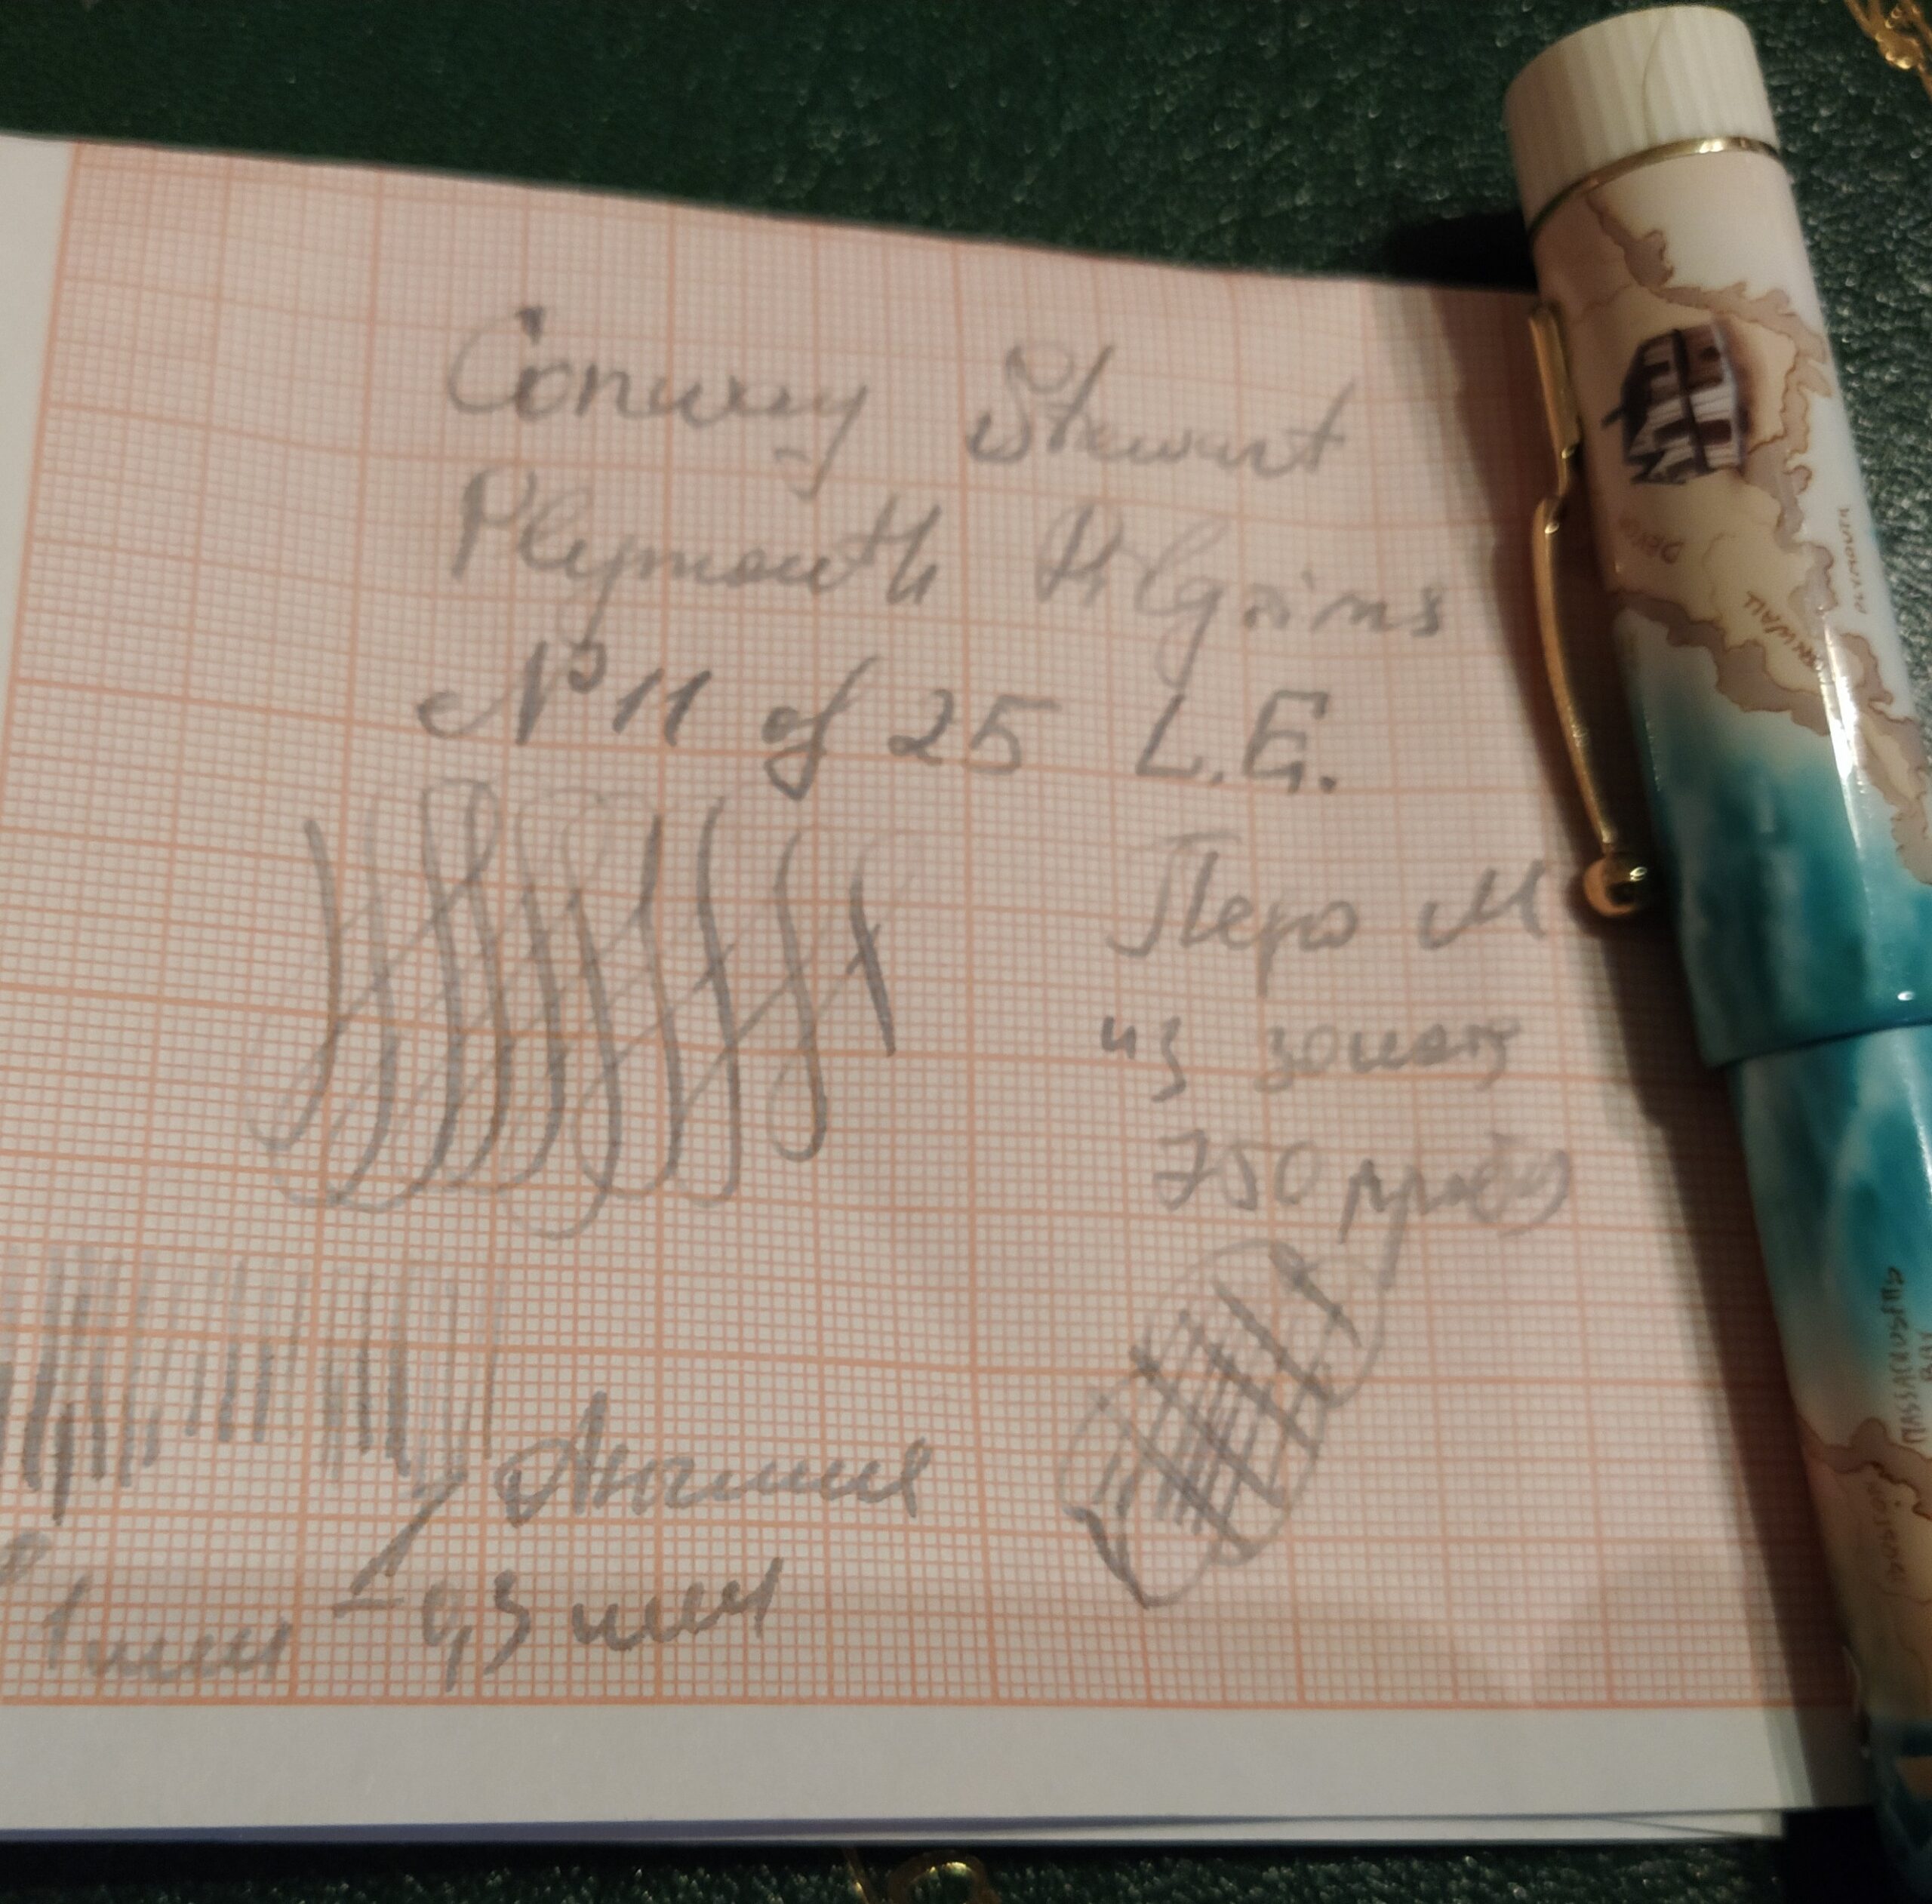 Conway Stewart
Plymouth Pilgrims
№ 11 of 25 L.E.
Перо М
из золота
750 пробы
Англия
1 мм
0,3 мм
DEVON
PLYMOUTH
CORNWALL
MASSACHUSETTS
BAY
BOSTON